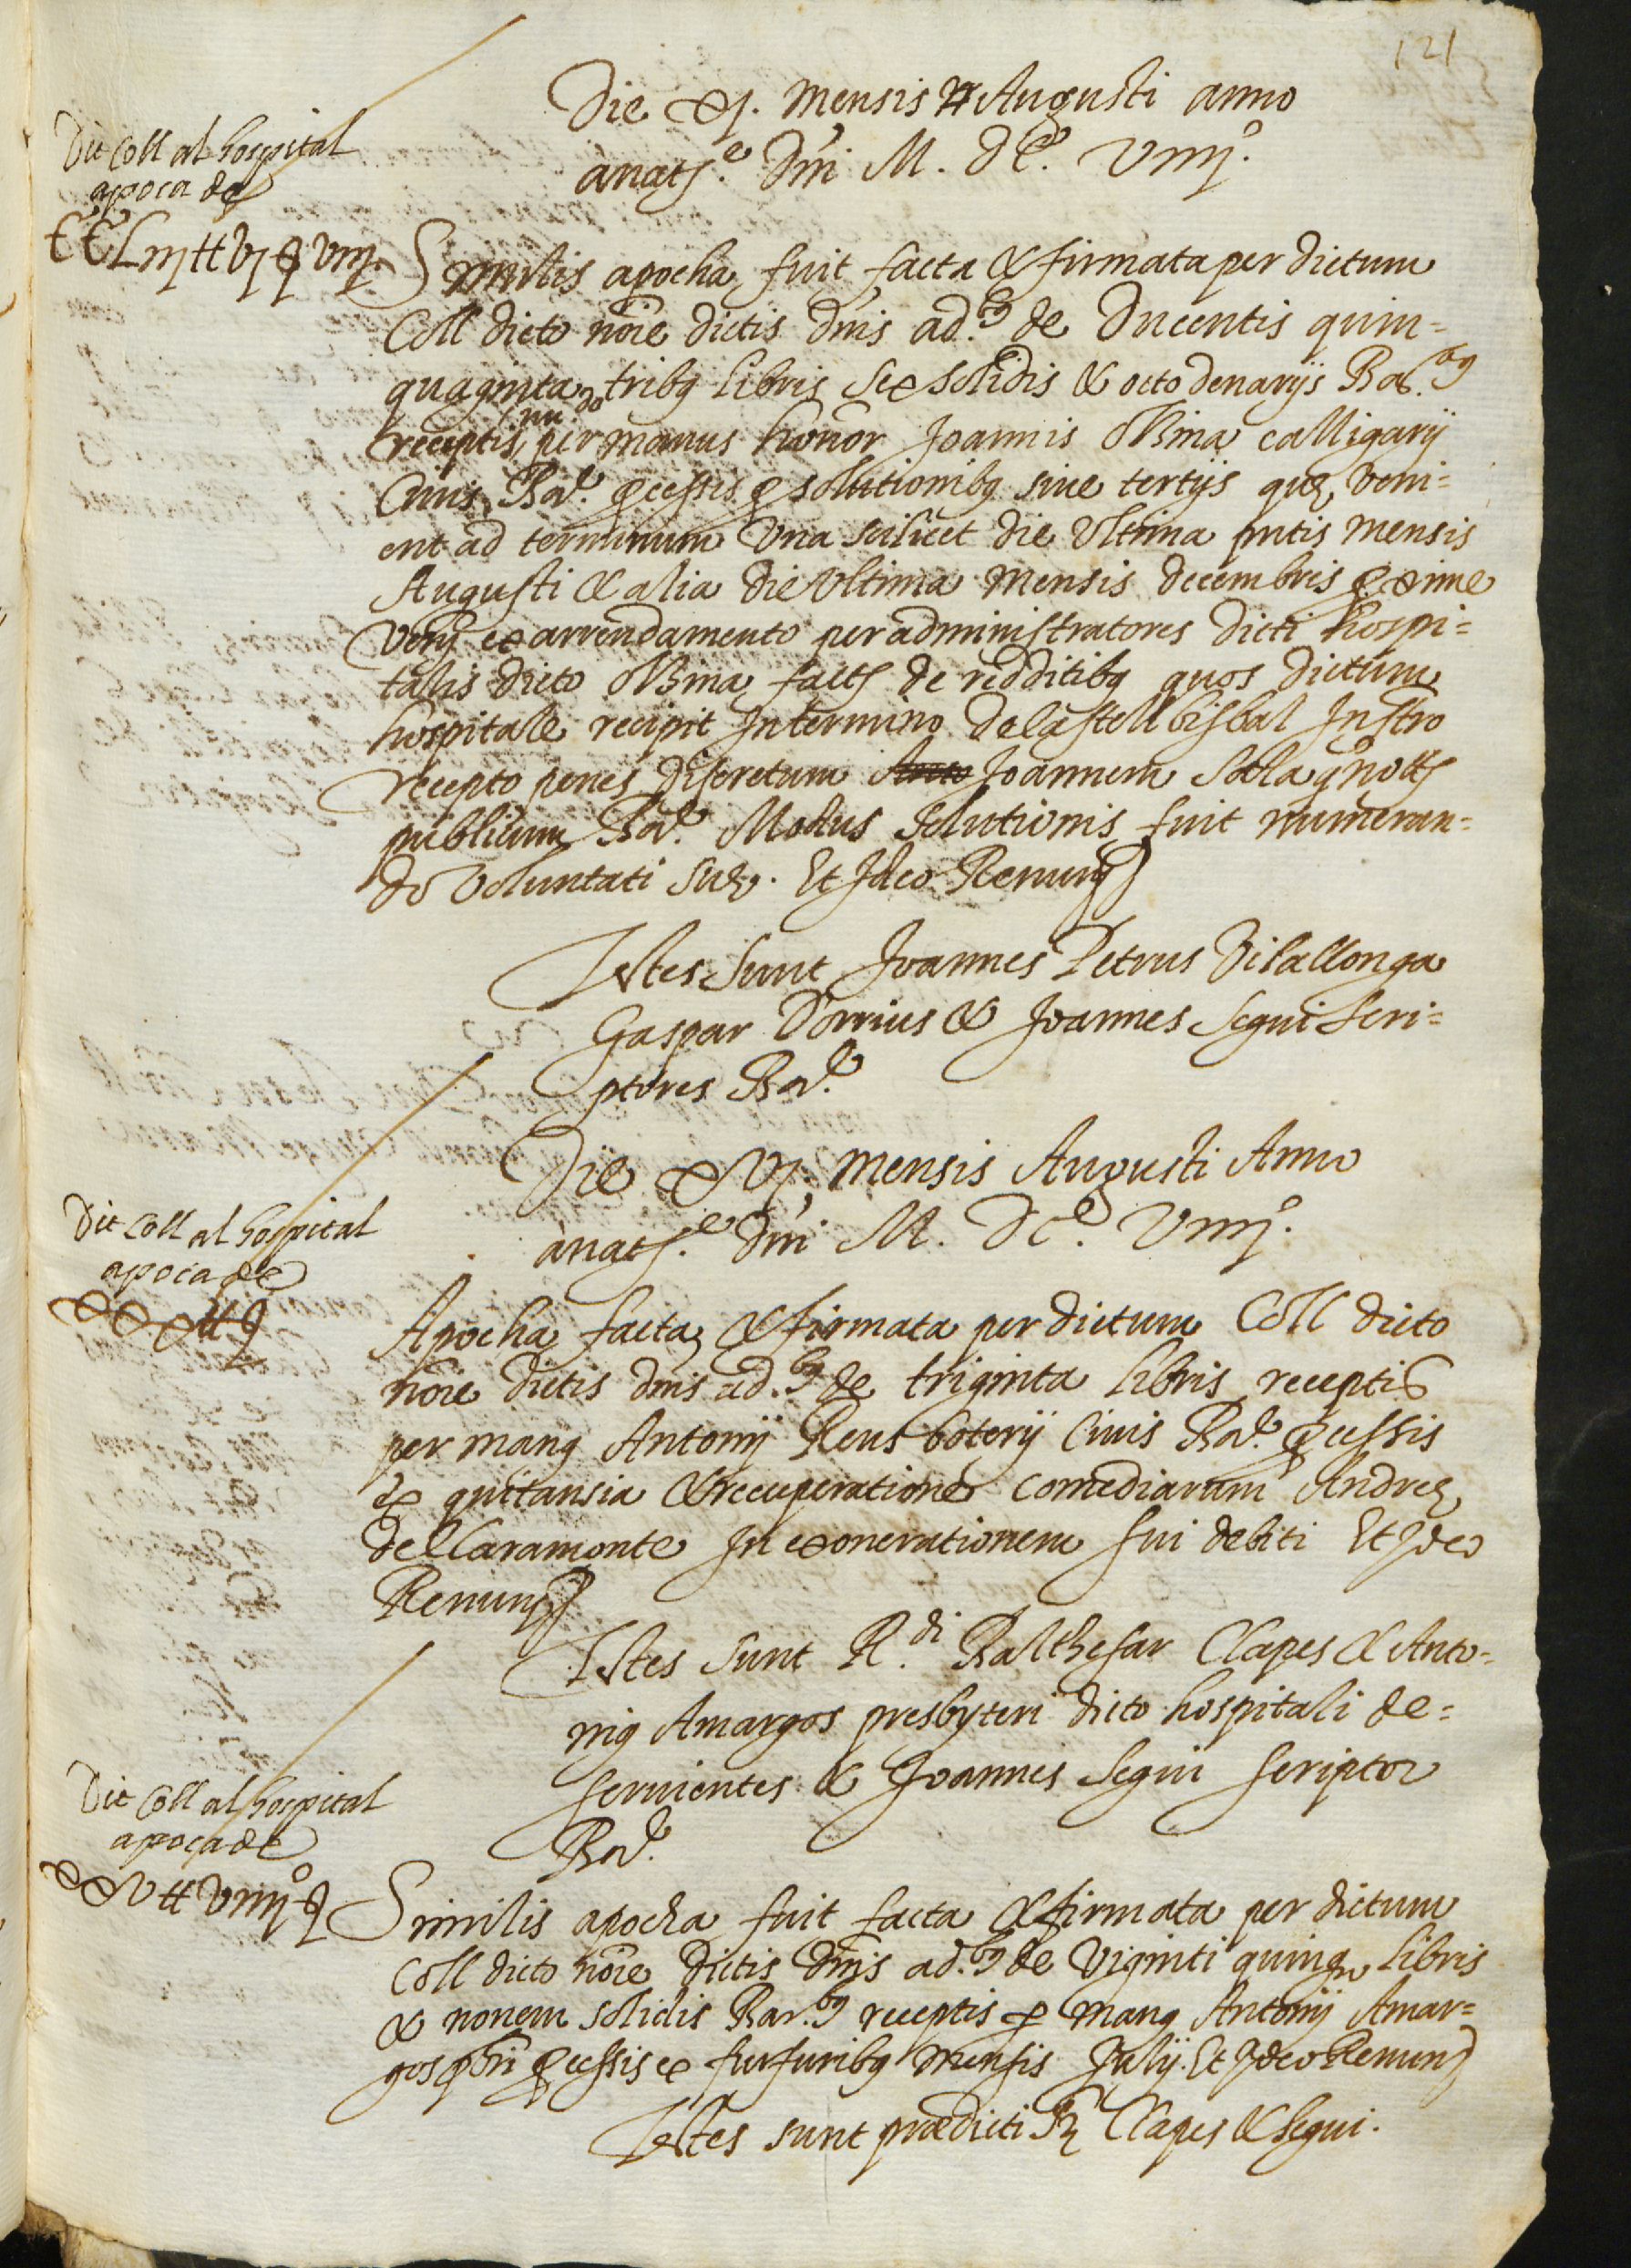 121
Die xj. mensis Augusti anno
à natte. Dñi M. DCo. Viiijo.
Dit Coll al hospital
apoca de
CCLiij tt vj ẜ viij
Similis apocha fuit facta & firmata per dictum
Coll dicto nõie dictis dñis ad.bꝯ de Ducentis quin=
quaginta tribꝯ libris sex solidis & octo denarijs Bar.bꝯ
receptis nudo per manus honor Joannis Olzina calligarij
Civis Bar. ꝓcessis ꝓ solutionibꝯ sive tertijs quę veni=
ent ad terminum una scilicet die ultima pñtis mensis
Augusti & alia die ultima mensis decembris ꝓxime
venꝭ ex arrendamento per administratores dicti hospi=
talis dicto Olzina factꝭ de redditibꝯ quos dictum
hospitale recipit In termino de Castellbisbal Instro
recepto penes Discretum Joannem Sala qº nottꝭ
publicum Bar. Modus Solutionis fuit numeran=
do voluntati suę. Et Ideo Renunꝭ
Testes sunt Joannes Petrus Vilallonga
Gaspar Dorrius & Joannes Segui scri=
ptores Bar.
Die xvj. mensis Augusti Anno
à natte. Dñi M. DCo. Viiijo.
Dit Coll al hospital
apoca de
xxx tt ẜ
Apocha facta & firmata per dictum Coll dicto
nõie dictis dñis ad.bꝯ de triginta libris receptis
per manꝯ Antonij Reus boterij Civis Bar. ꝓcessis
ex quitansia & recuperatione comediarum Andreę
de Claramonte In exonerationem sui debiti Et Ideo
Renunꝭ
Testes sunt R.di Balthesar Clapes & Anto=
niꝯ Amargos presbyteri dicto hospitali de=
servientes & Joannes Segui scriptor
Bar.
Dit Coll al hospital
apoca de
xxv tt viiijo ẜ
Similis apocha fuit facta & firmata per dictum
Coll dicto nõie dictis dñis ad.bꝯ de viginti quinqꝫ libris
& novem solidis Bar.bꝯ receptis ꝑ manꝯ Antonij Amar=
gos pbrī ꝓcessis ex furfuribꝯ mensis Julij. Et Ideo Renunꝭ
Testes sunt prædicti Clapes & Segui.